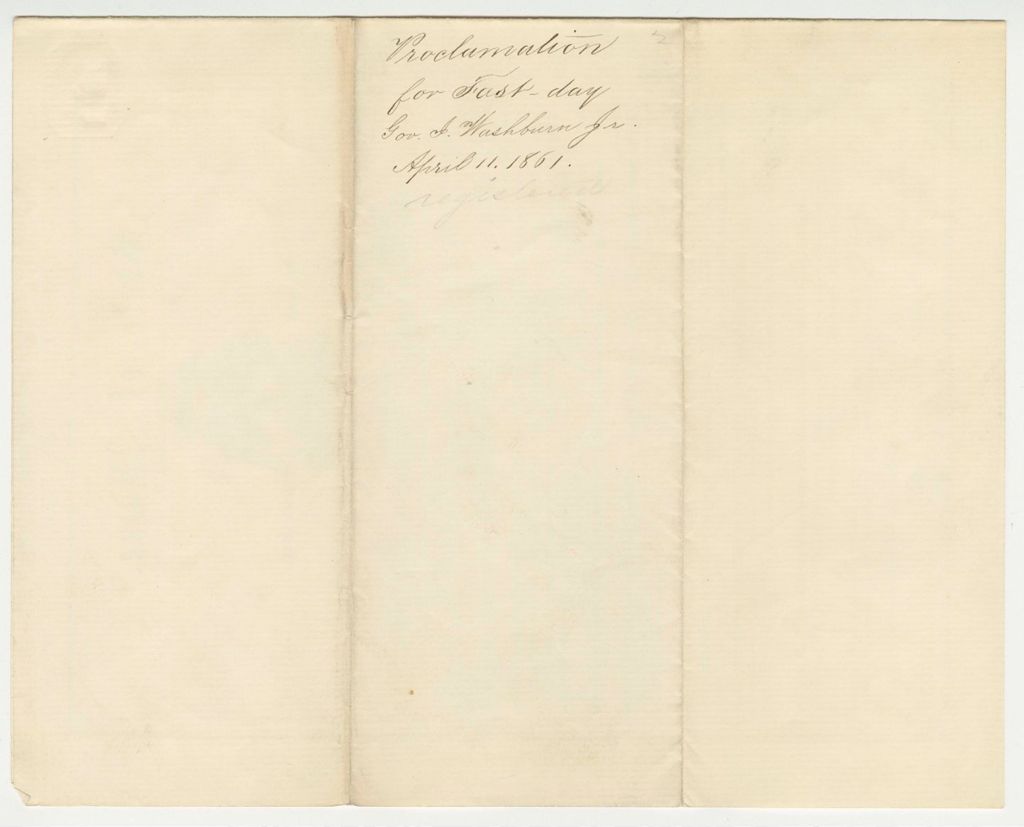 Proclamation
for Fast-day
Gov. I. Washburn Jr.
April 11. 1861.
registered